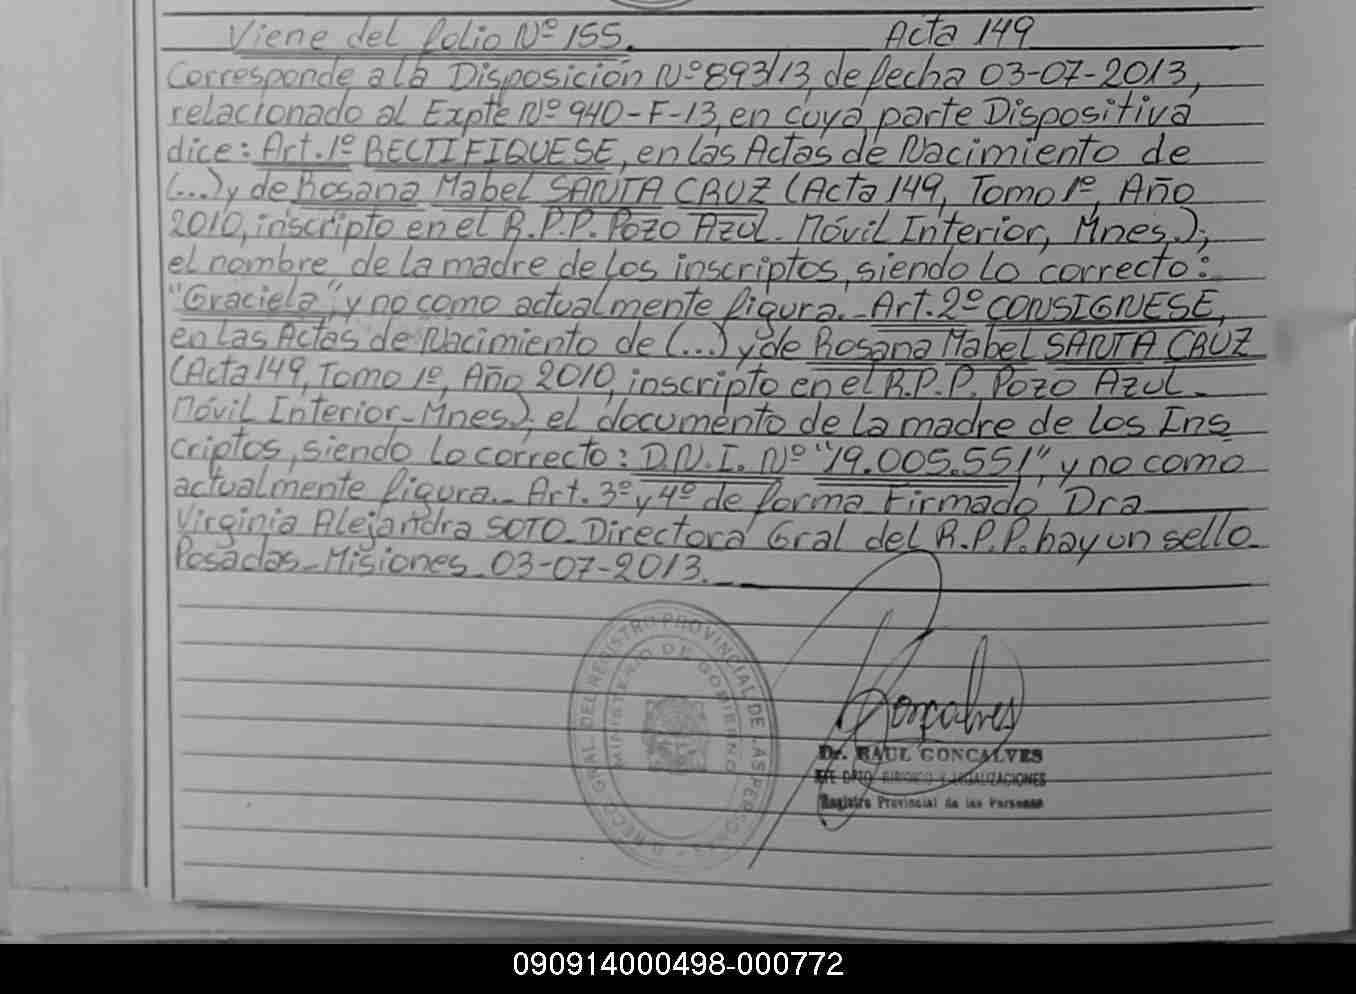 Viene del folio Nº 155. Acta 149
Corresponde a la Disposición Nº 893/13, de fecha 03-07-2013,
relacionado al Expte Nº 940-F-13, en cuya parte Dispositiva
dice: Art. 1º RECTIFIQUESE, en las Actas de Nacimiento de
(...) y de Rosana Mabel SANTA CRUZ (Acta 149, Tomo 1º, Año
2010, inscripto en el R.P.P. Pozo Azul. Móvil Interior, Mnes.);
el nombre de la madre de los inscriptos, siendo lo correcto:
"Graciela", y no como actualmente figura.- Art. 2º CONSIGNESE,
en las Actas de Nacimiento de (...) y de Rosana Mabel SANTA CRUZ
(Acta 149, Tomo 1º, Año 2010, inscripto en el R.P.P. Pozo Azul-
Móvil Interior-Mnes.); el documento de la madre de los Ins
criptos, siendo lo correcto: D.N.I. Nº "19.005.551", y no como
actualmente figura.- Art. 3º y 4º de forma Firmado Dra
Virginia Alejandra SOTO- Directora Gral del R.P.P. hay un sello-
Posadas-Misiones 03-07-2013.-
DIRECC. GRAL. DEL REGISTRO PROVINCIAL DE LAS PERSONAS
MINISTERIO DE GOBIERNO
Gonçalves
Dr. RAUL GONCALVES
JEFE DPTO. JURIDICO Y LEGALIZACIONES
Registro Provincial de las Personas
090914000498-000772